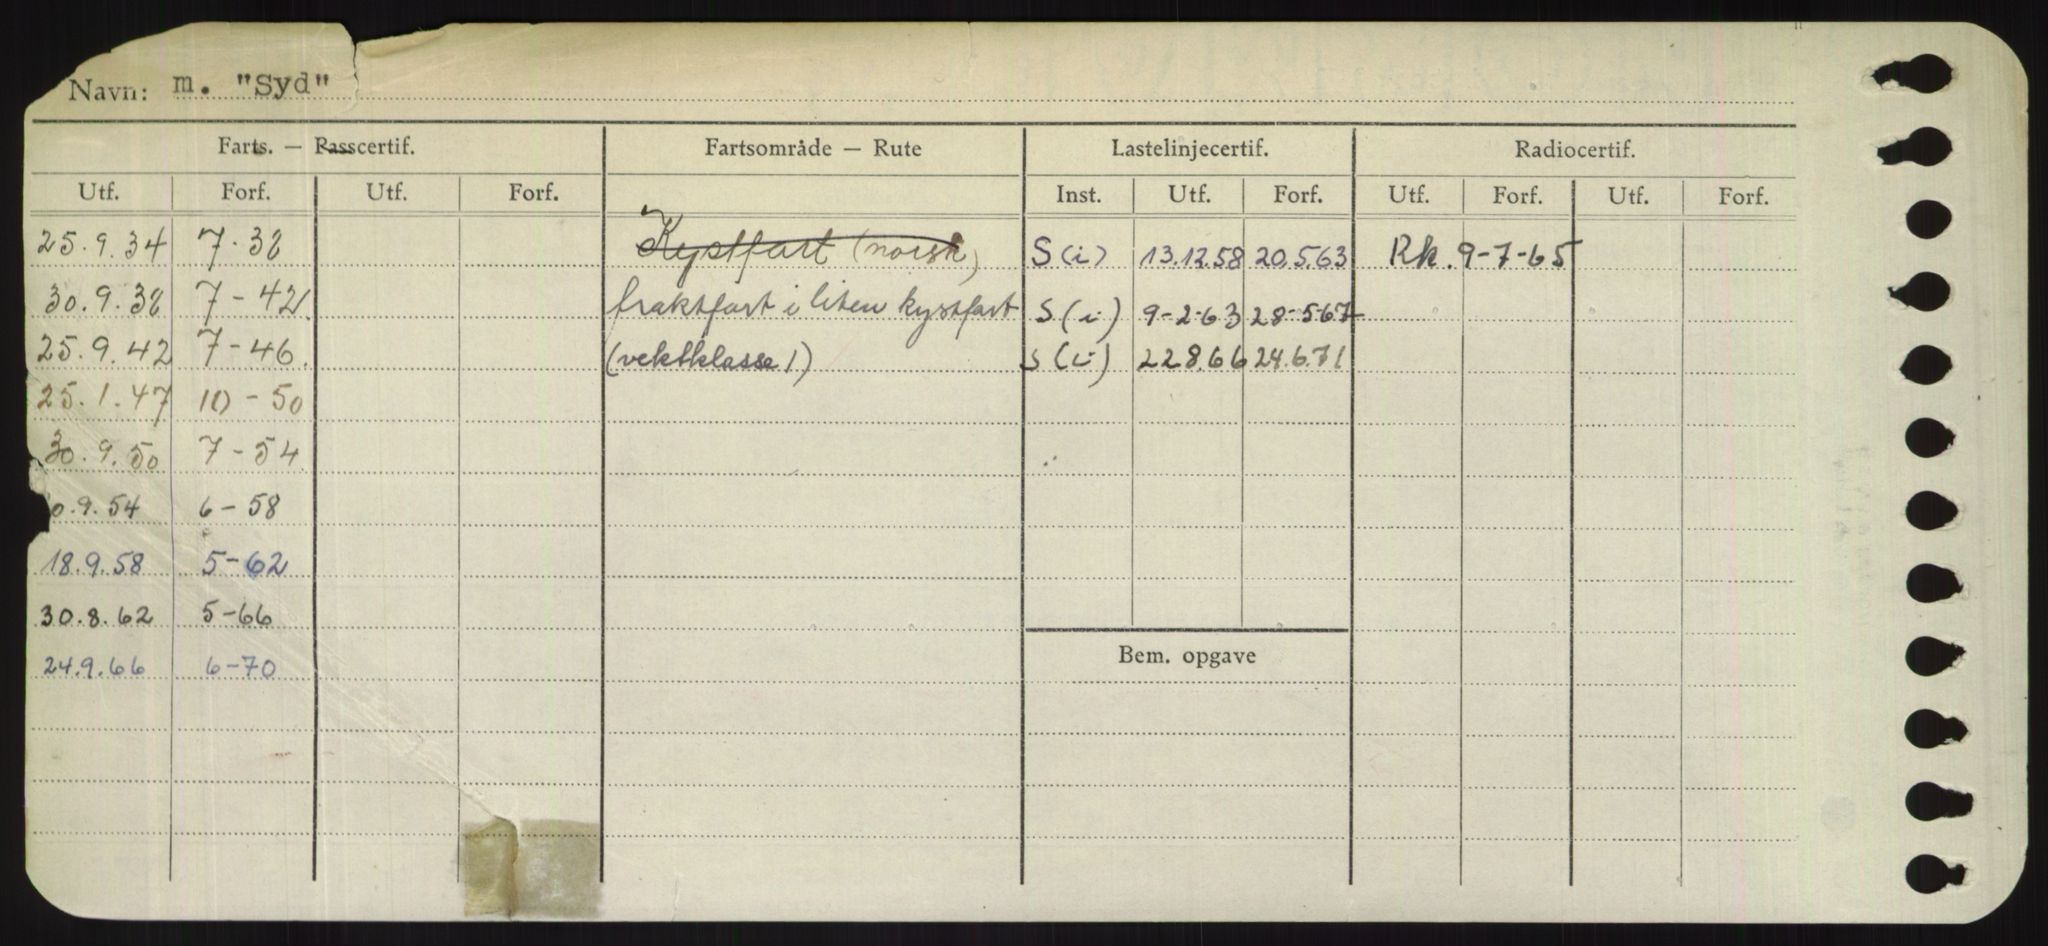 Navn: m. "Syd"
Farts. — Passcertif. Fartsområde — Rute Lastelinjecertif. Radiocertif.
Utf. Forf. Utf. Forf. Inst. Utf. Forf. Utf. Forf. Utf. Forf.
25.9.34 7-38 Kystfart (norsk) S(i) 13.12.58 20.5.63 Rk. 9-7-65
30.9.38 7-42 fraktfart i liten kystfart S(i) 9-2-63 28-5-67
25.9.42 7-46. (vektklasse 1) S(i) 22.8.66 24.6.71
25.1.47 10-50
30.9.50 7-54
0.9.54 6-58
18.9.58 5-62
30.8.62 5-66
24.9.66 6-70
Bem. opgave